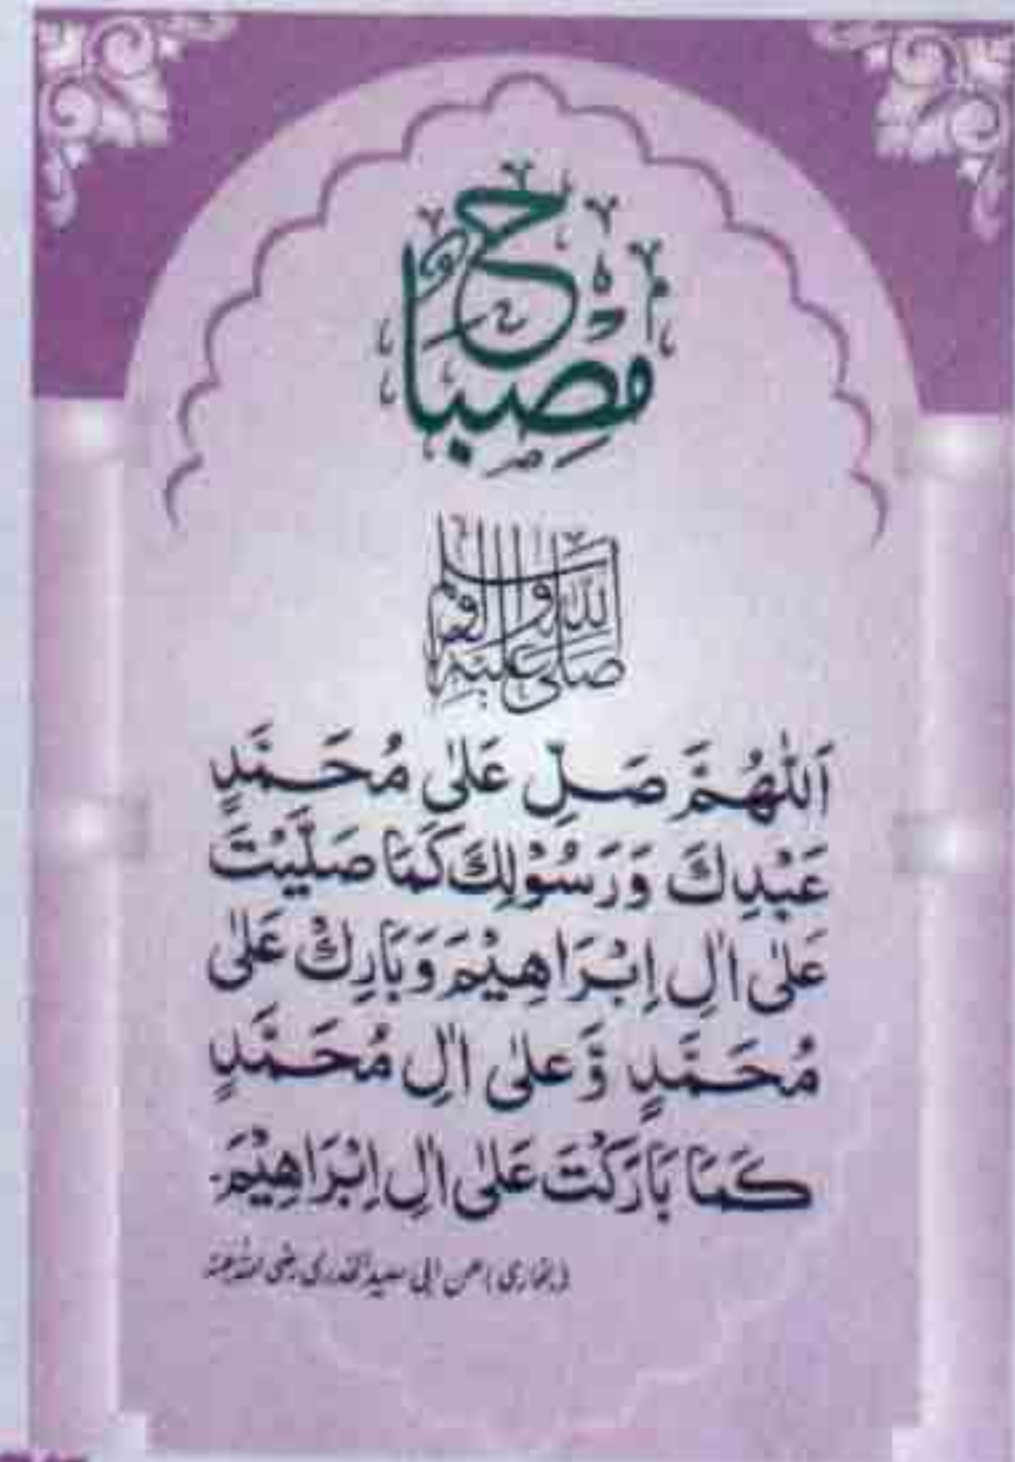 مِصْبَاحٌ
صَلَّى اللّٰهُ عَلَيْهِ وَآلِهِ وَسَلَّمَ
اَللّٰهُمَّ صَلِّ عَلٰى مُحَمَّدٍ
عَبْدِكَ وَرَسُوْلِكَ كَمَا صَلَّيْتَ
عَلٰى اٰلِ اِبْرَاهِيْمَ وَبَارِكْ عَلٰى
مُحَمَّدٍ وَّعلٰى اٰلِ مُحَمَّدٍ
كَمَا بَارَكْتَ عَلٰى اٰلِ اِبْرَاهِيْمَ۔
(بخاری) عن ابی سعید الخدری رضی اللہ عنہ